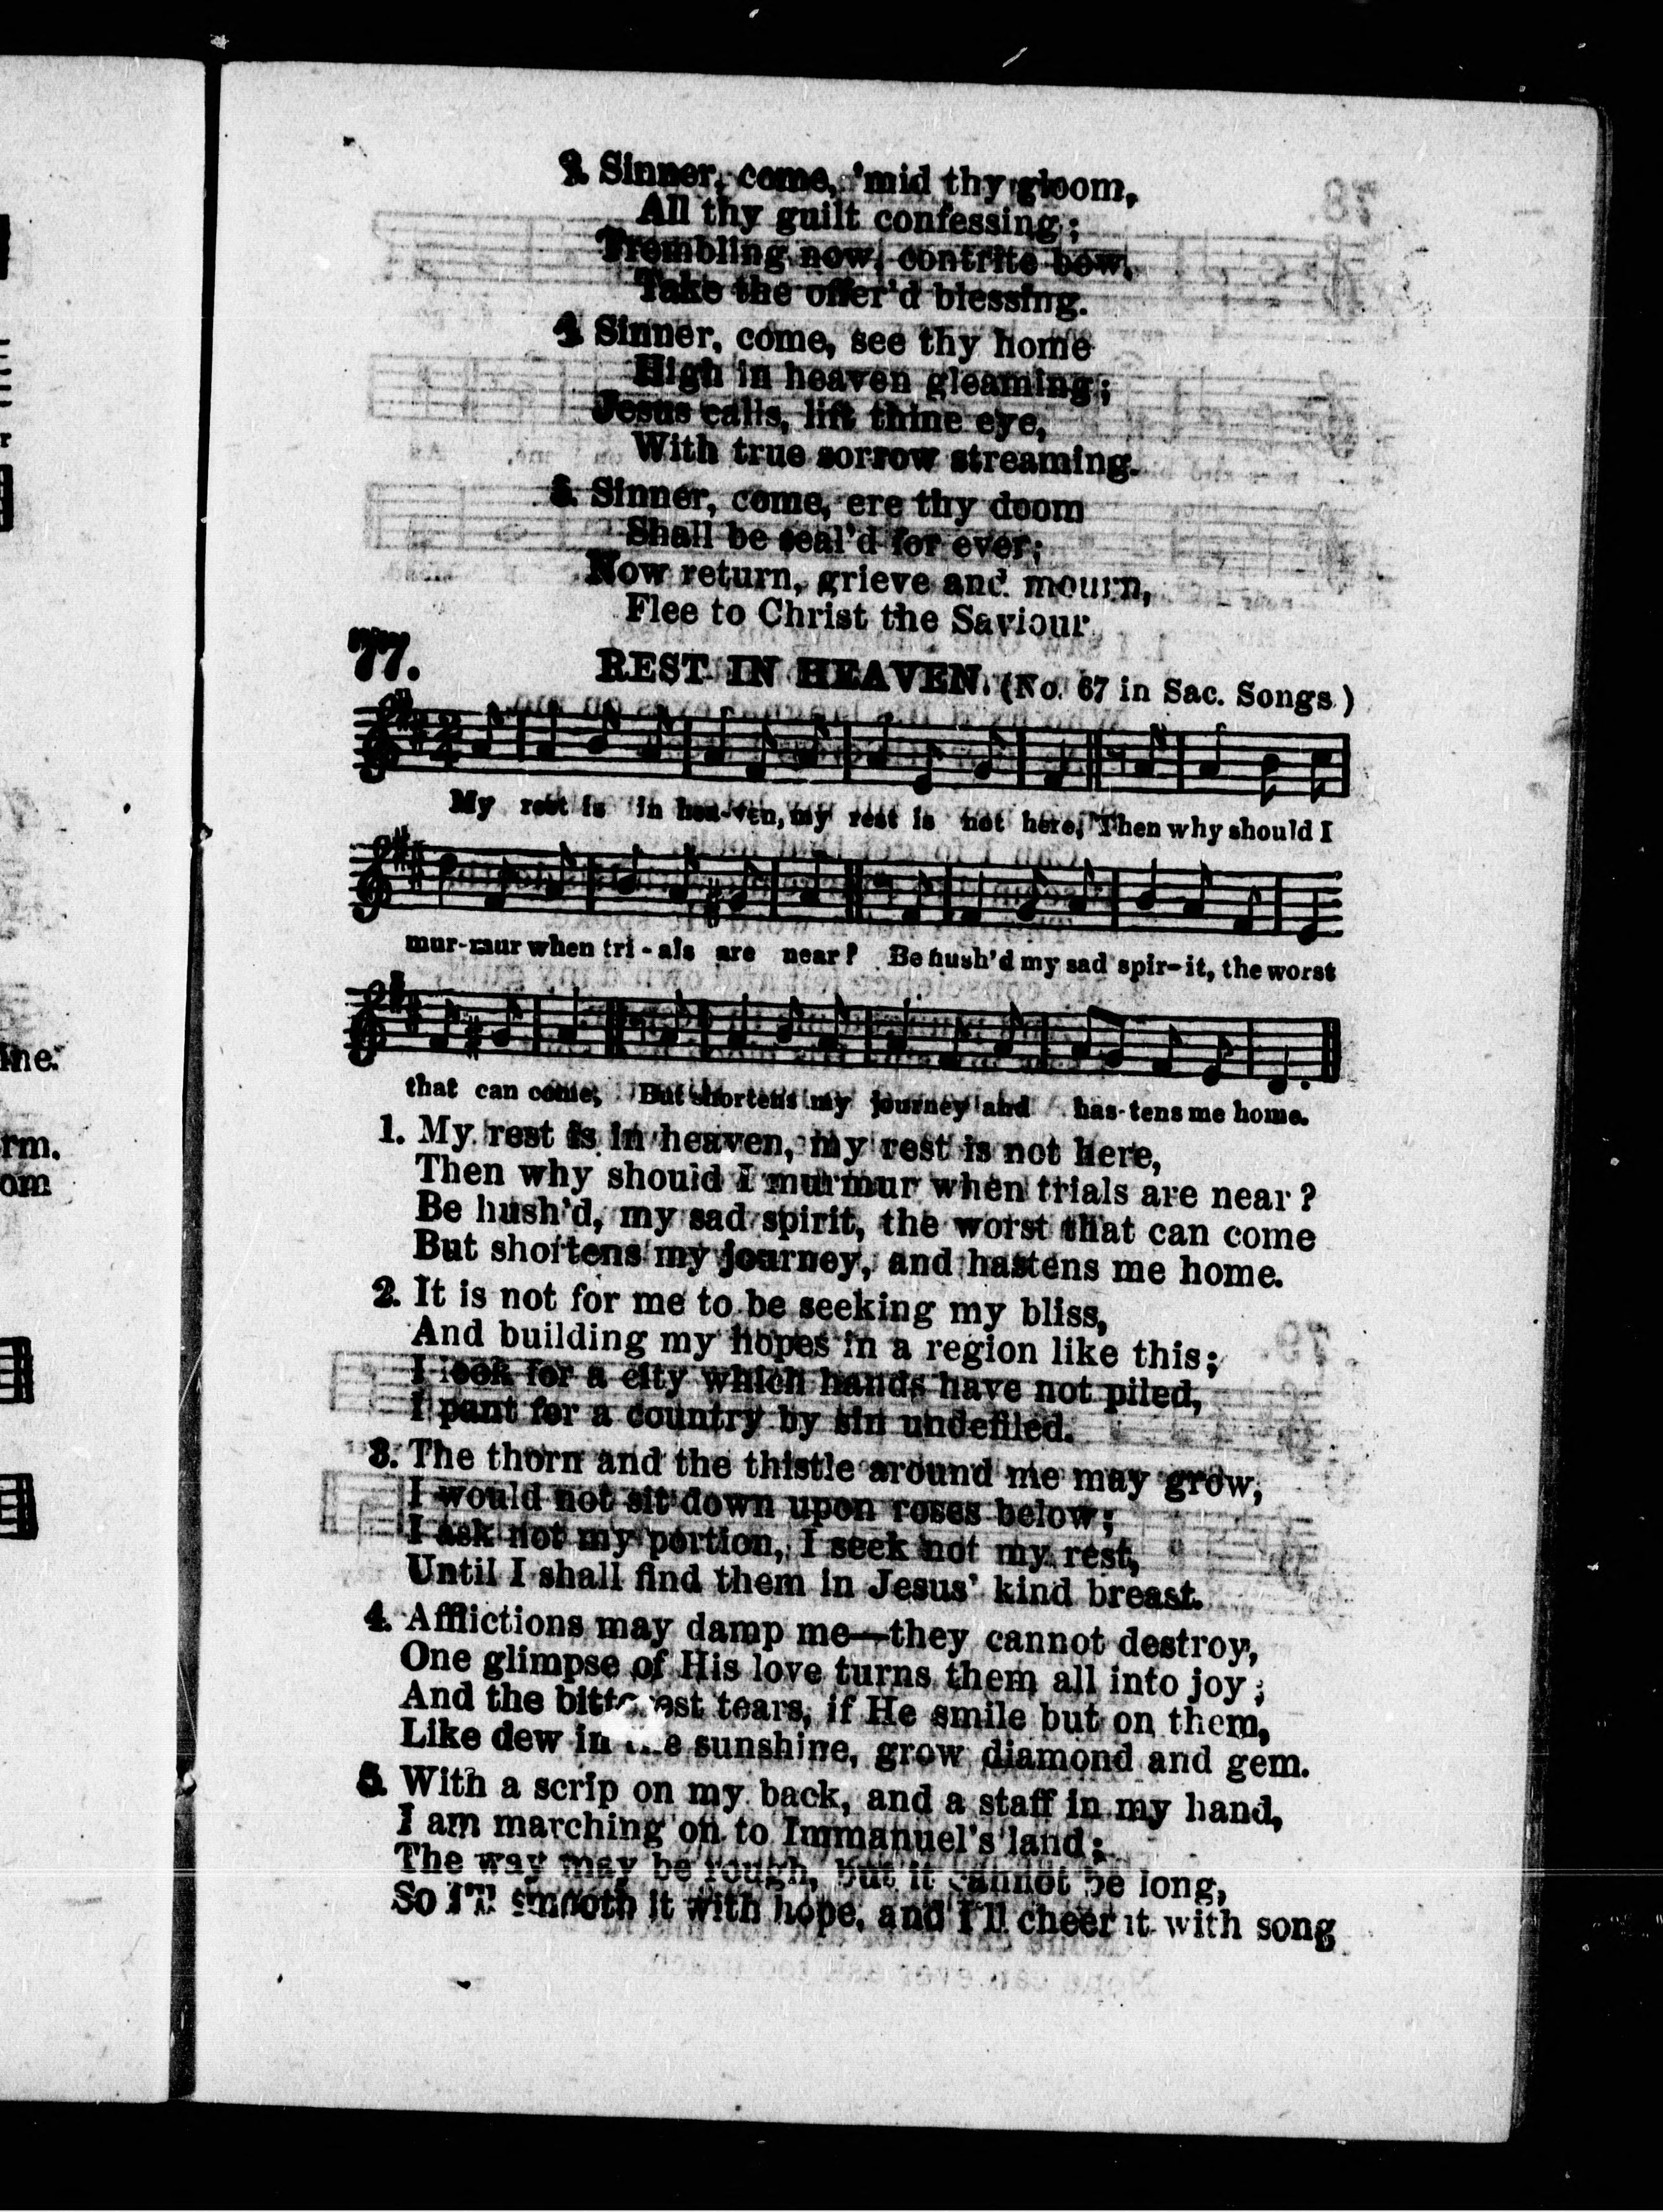 3. Sinner, come, 'mid thy gloom,
All thy guilt confessing;
Trembling now, contrite bow,
Take the offer'd blessing.
4 Sinner, come, see thy home
High in heaven gleaming;
Jesus calls, lift thine eye,
With true sorrow streaming.
5. Sinner, come, ere thy doom
Shall be seal'd for ever;
Now return, grieve and mourn,
Flee to Christ the Saviour
77.
REST IN HEAVEN. (No. 67 in Sac. Songs.)
My rest is in hea-ven, my rest is not here, Then why should I
mur-mur when tri-als are near? Be hush'd my sad spir-it, the worst
that can come, But shortens my journey and has-tens me home.
1. My rest is in heaven, my rest is not here,
Then why should I murmur when trials are near?
Be hush'd, my sad spirit, the worst that can come
But shortens my journey, and hastens me home.
2. It is not for me to be seeking my bliss,
And building my hopes in a region like this;
I look for a city which hands have not piled,
I pant for a country by sin undefiled.
3. The thorn and the thistle around me may grow,
I would not sit down upon roses below;
I ask not my portion, I seek not my rest,
Until I shall find them in Jesus' kind breast.
4. Afflictions may damp me—they cannot destroy,
One glimpse of His love turns them all into joy;
And the bitterest tears, if He smile but on them,
Like dew in the sunshine, grow diamond and gem.
5. With a scrip on my back, and a staff in my hand,
I am marching on to Immanuel's land;
The way may be rough, but it cannot be long,
So I'll smooth it with hope, and I'll cheer it with song